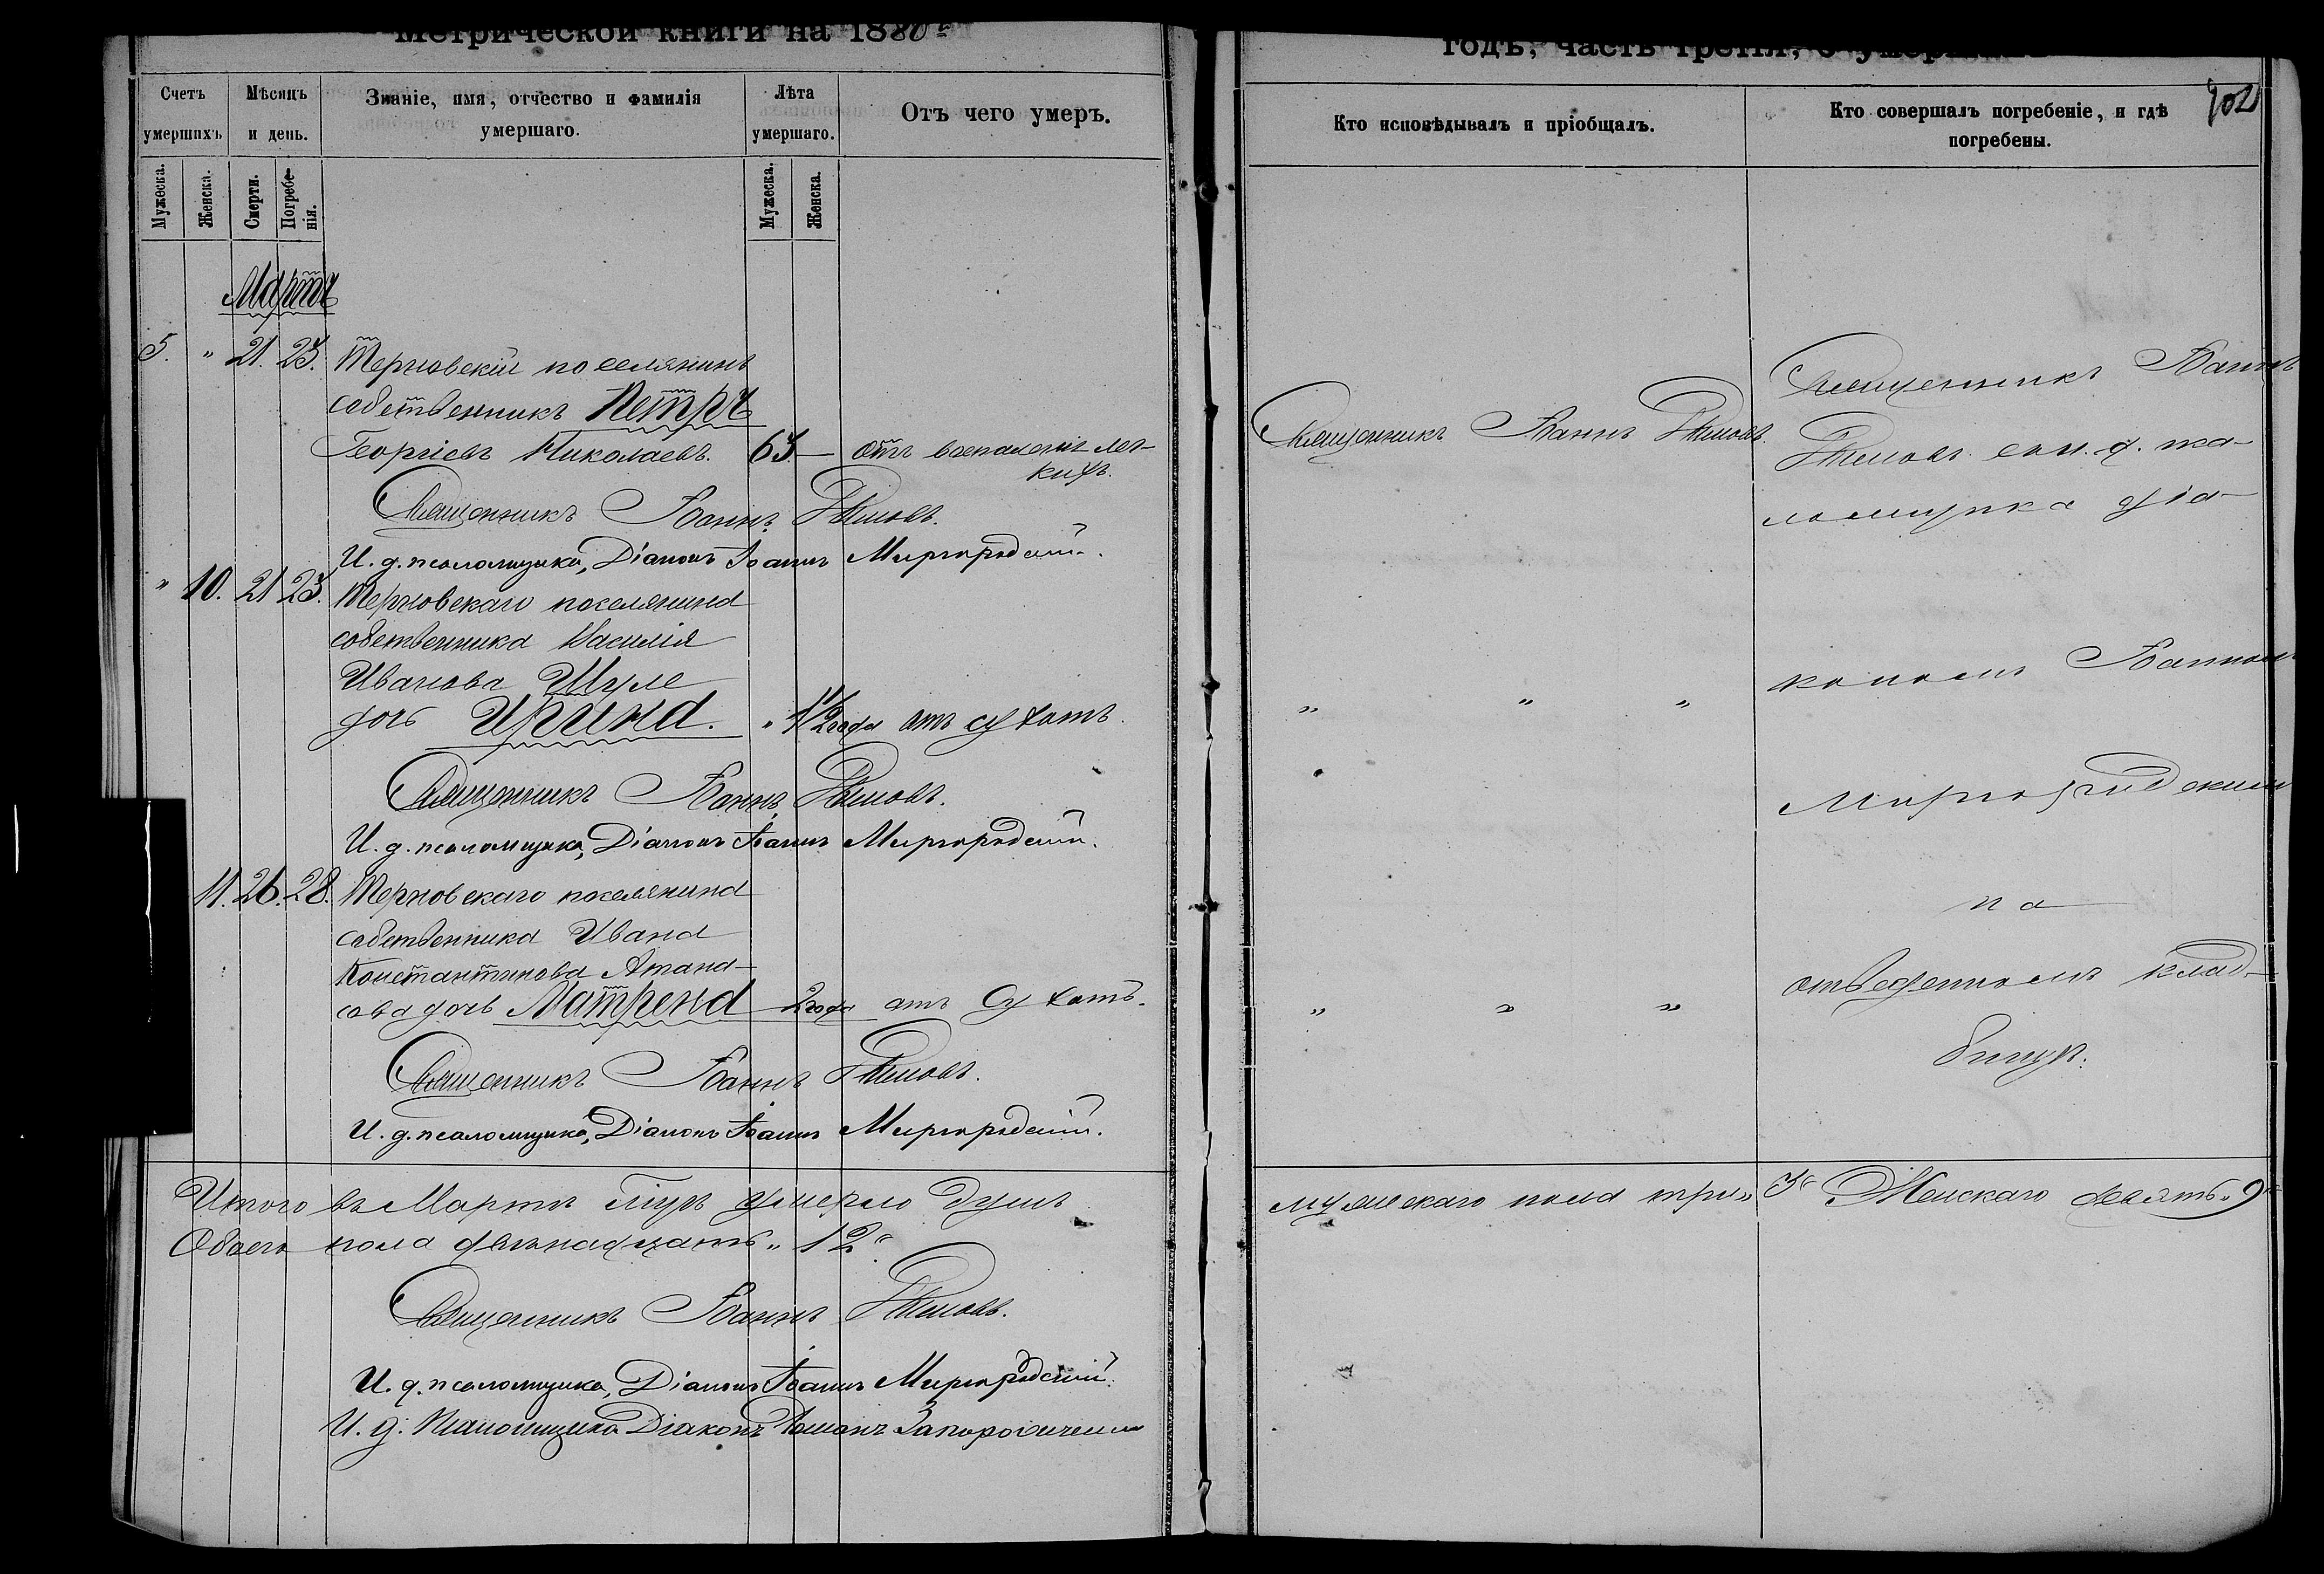 Метрической книги на 1880 г.
годъ, часть третія, о умершихъ
902
Счетъ умершихъ
Мѣсяцъ и день.
Званіе, имя, отчество и фамилія умершаго.
Лѣта умершаго.
Отъ чего умеръ.
Кто исповѣдывалъ и пріобщалъ.
Кто совершалъ погребеніе, и гдѣ погребены.
Мужеска.
Женска.
Смерти.
Погребенія.
Мужеска.
Женска.
Мартъ
5. " 21. 23. Терновскій поселянинъ
собственникъ Петръ
Георгіевъ Николаевъ. 63. — отъ воспаленія лег-
кихъ.
Священникъ Іоаннъ
И. д. псаломщика, Діаконъ Іоаннъ Миргородскій.
" 10. 21 23. Терновскаго поселянина
собственника Василія
Иванова Шуле
дочь Ирина. " 1 1/2 года отъ сухотъ.
Священникъ Іоаннъ
И. д. псаломщика, Діаконъ Іоаннъ Миргородскій.
11. 26. 28. Терновскаго поселянина
собственника Ивана
Константинова Атана-
сова дочь Матрена 2 года отъ Сухотъ.
Священникъ Іоаннъ
И. д. псаломщика, Діаконъ Іоаннъ Миргородскій.
Священникъ Іоаннъ
" " "
" " "
Священникъ Іоаннъ
съ и. д. пса-
ломщика діа-
кономъ Іоанномъ
Миргородскимъ
на
отведенномъ клад-
бищѣ.
Итого въ Мартѣ мѣс. умерло душъ мужескаго пола три " 3 " Женскаго девять " 9 "
Обоего пола двѣнадцать " 12 "
Священникъ Іоаннъ
И. д. псаломщика, Діаконъ Іоаннъ Миргородскій.
И. д. Псаломщика Діаконъ